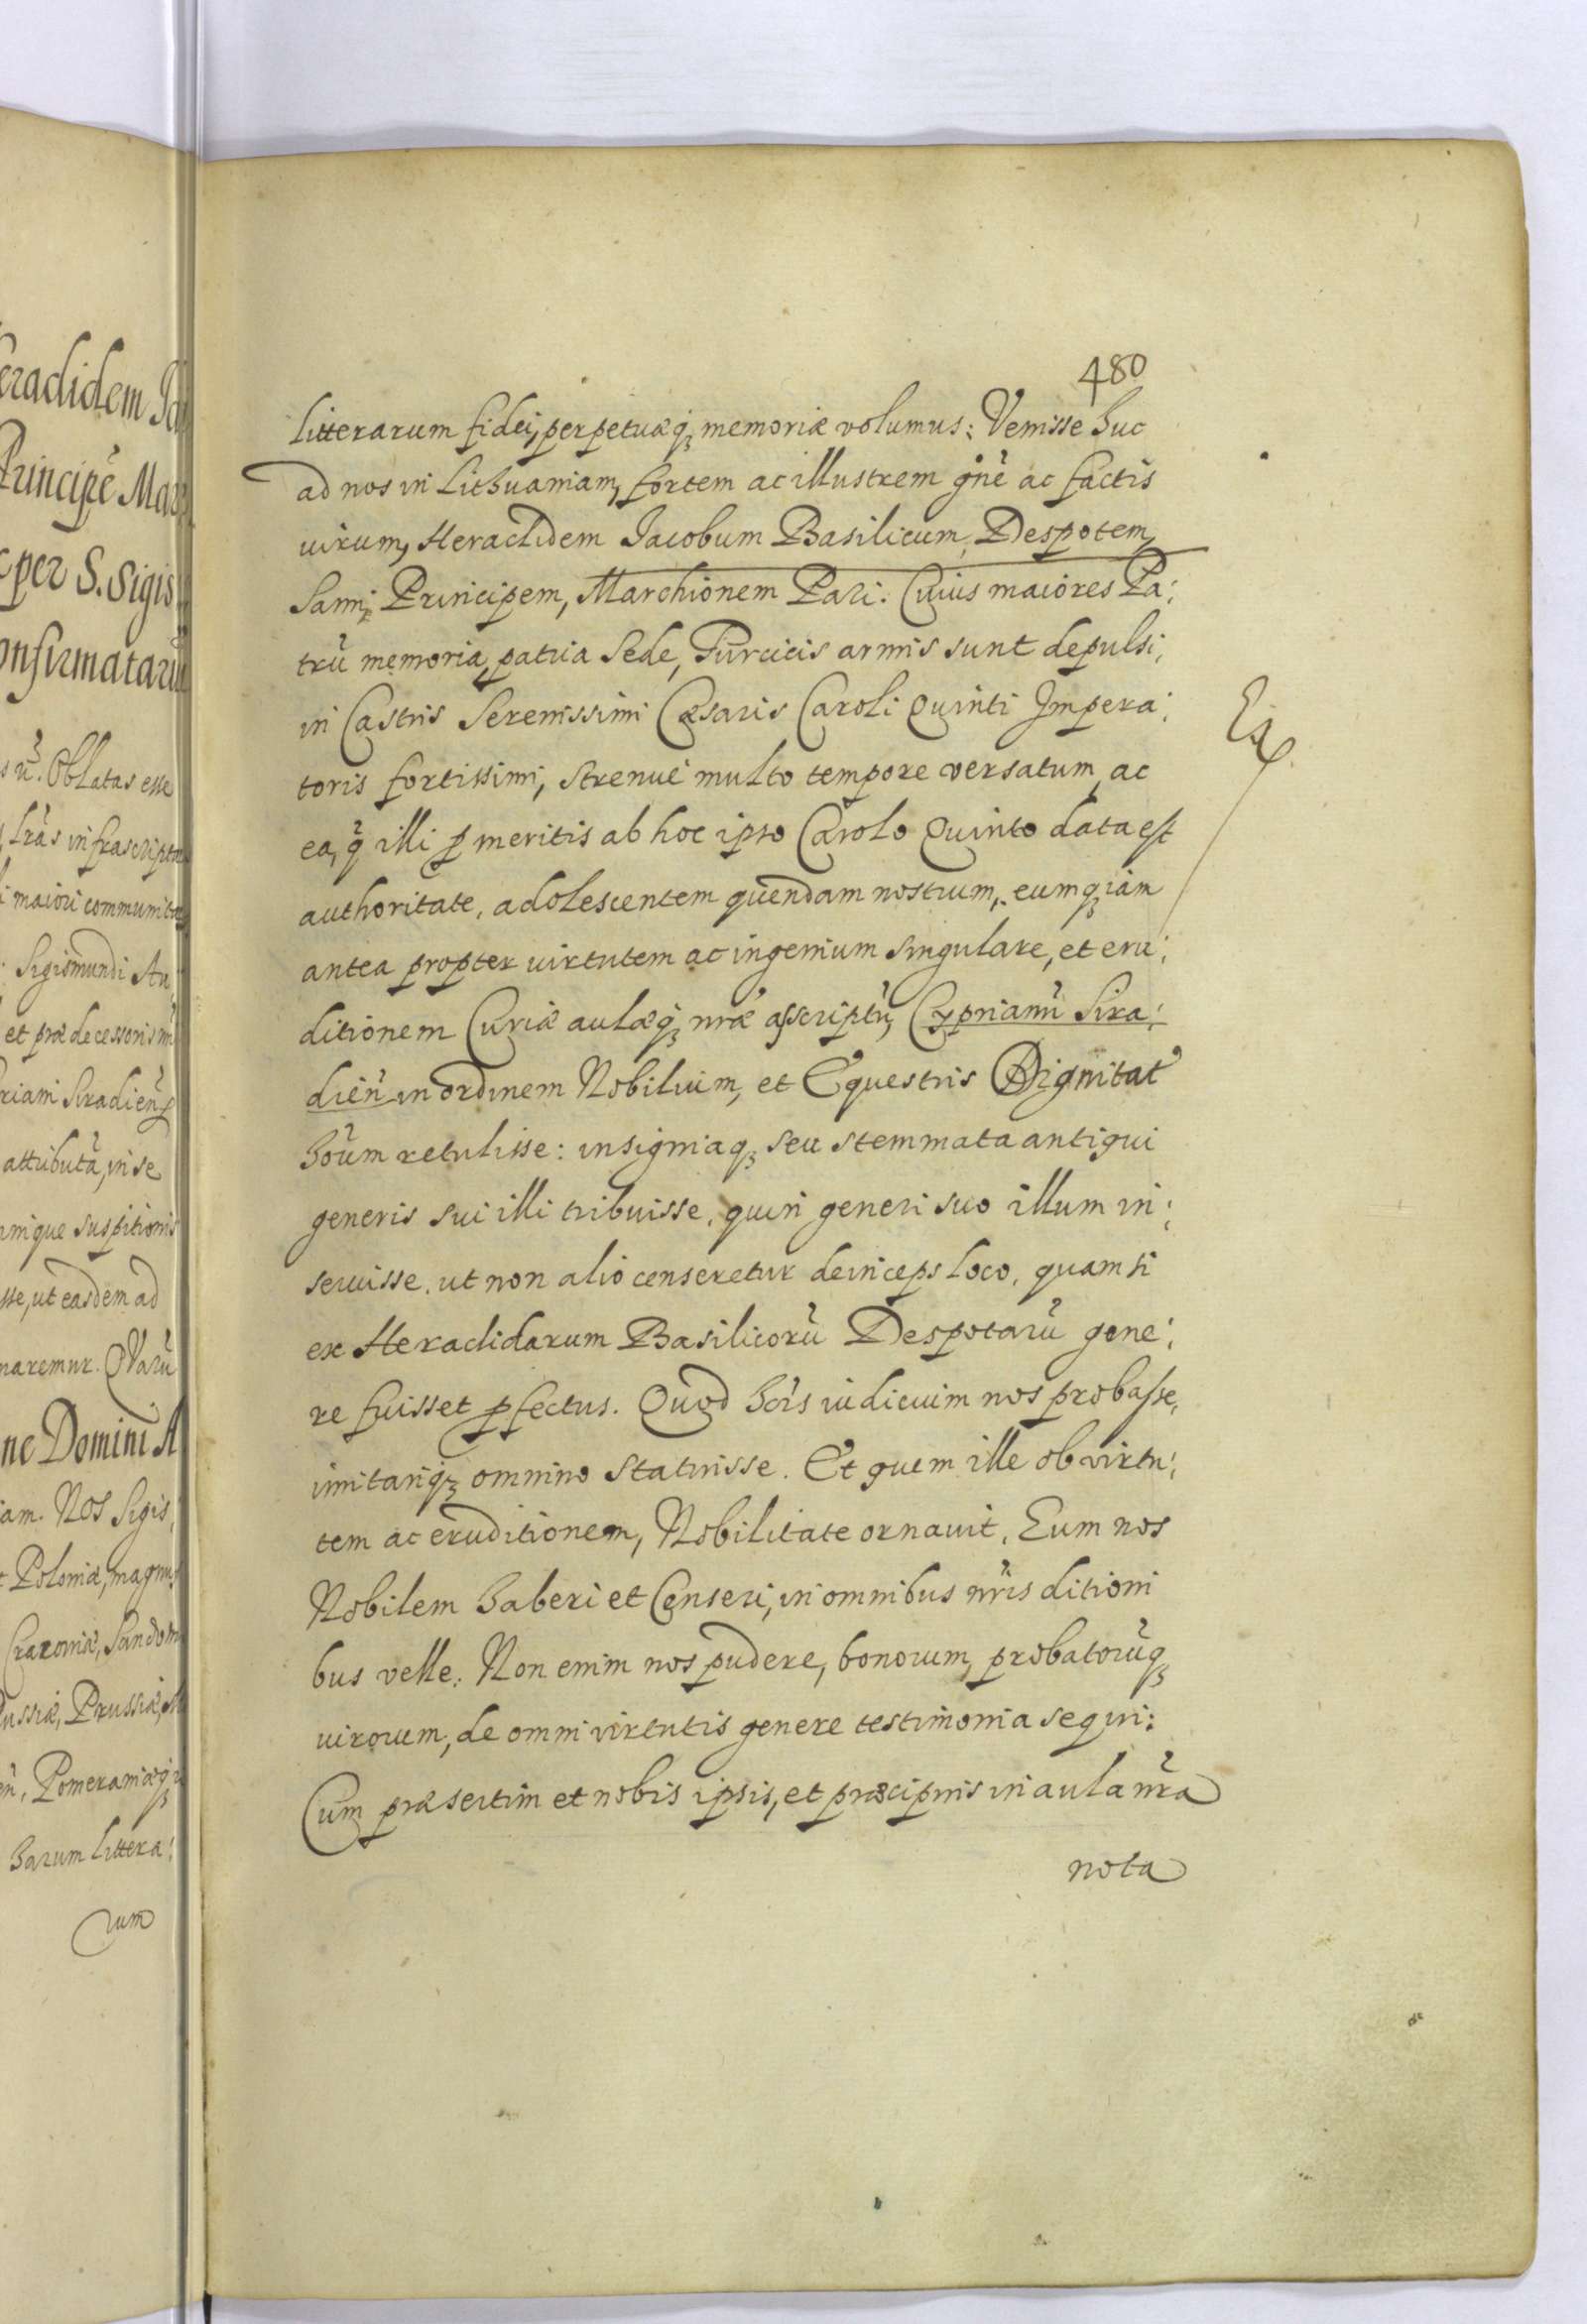 eradidem Ja
Principẽ Mar
per S. Sigis
onfirmatarũ
ũ. Oblatas esse
lr̃as infrascriptas
maiori communita
Sigismundi Au
et prædecessoris nr̃i
riani Siradieñ
attributã, in se
nique suspitionis
sse, ut easdem ad
naremur. Qvarũ
ne Domini A
am. Nos Sigis,
Poloniæ, magnus
Cracoviæ, Sandom
ussiæ, Prussiæ, M
eñ, Pomeraniæq;
harum littera:
rum
480
litterarum fidei, perpetuæq; memoriæ volumus: Venisse huc
ad nos in Lithuaniam, fortem ac illustrem gñe ac factis
uirum, Heraclidem Jacobum Basilicum, Despotem,
Sami, Principem, Marchionem Pari. Cuius maiores Pa:
trũ memoria, patria Sede, Turcicis armis sunt depulsi,
in Castris Serenissimi Cæsaris Caroli Quinti Impera:
toris fortissimi, strenuè multo tempore versatum, ac
ea, q̃ illi p meritis ab hoc ipso Carolo Quinto data est
authoritate, adolescentem quendam nostrum, eumq; iam
antea propter uirtutem ac ingenium singulare, et eru:
ditionem Curiæ aulæq; nr̃æ asscriptũ, Cyprianũ Sira:
dieñ in ordinem Nobilium, et Equestris Dignitat̃
hoĩum retulisse: insigniaq; seu stemmata antiqui
generis sui illi tribuisse, quin generi suo illum in:
seruisse, ut non alio censeretur deinceps loco, quam si
ex Heraclidarum Basilicorũ Despotarũ gene:
re fuisset pfectus. Quod hõis iudicium nos probasse,
imitariq; omnino statuisse. Et quem ille ob virtu:
tem ac eruditionem, Nobilitate ornauit, Eum nos
Nobilem haberi et Censeri, in omnibus nr̃is ditioni
bus velle. Non enim nos pudere, bonorum, probatorũq;
uirorum, de omni virtutis genere testimonia sequi:
Cum præsertim et nobis ipsis, et præcipuis in aula nr̃a
nota